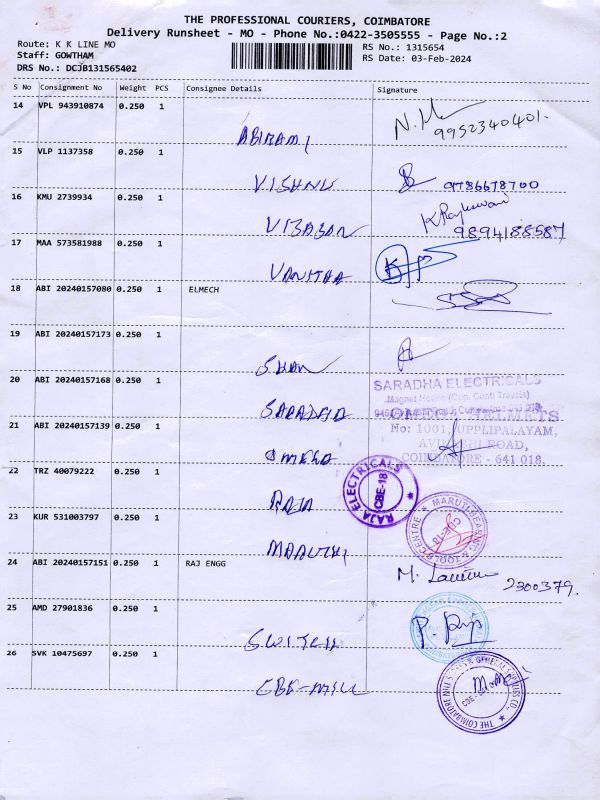 THE PROFESSIONAL COURIERS, COIMBATORE
Delivery Runsheet - MO - Phone No.:0422-3505555 - Page No.:2
Route: K K LINE MO
Staff: GOWTHAM
DRS No.: DCJB131565402
RS No.: 1315654
RS Date: 03-Feb-2024
S No Consignment No Weight PCS Consignee Details Signature
14 VPL 943910874 0.250 1
ABIRAMI
9952340401.
15 VLP 1137358 0.250 1
VISHNU
9786678700
16 KMU 2739934 0.250 1
K Rajeswari
9894188587
17 MAA 573581988 0.250 1
VANITHA
18 ABI 20240157080 0.250 1 ELMECH
19 ABI 20240157173 0.250 1
SHAN
20 ABI 20240157168 0.250 1
SARADHA ELECTRICALS
SARADHA
21 ABI 20240157139 0.250 1
No: 1001, UPPLIPALAYAM,
ROAD,
COIMBATORE - 641 018.
OMEGA
22 TRZ 40079222 0.250 1
RAJA ELECTRICALS
CBE-18
RAJA
23 KUR 531003797 0.250 1
MARUTHI BEARING & TOOLS CENTRE
CBE-18
MARUTHI
24 ABI 20240157151 0.250 1 RAJ ENGG
2300379.
25 AMD 27901836 0.250 1
SWITCH
26 SVK 10475697 0.250 1
CBE-MILL
THE COIMBATORE MILL STORES & GENERAL SUPPLIES CO.,